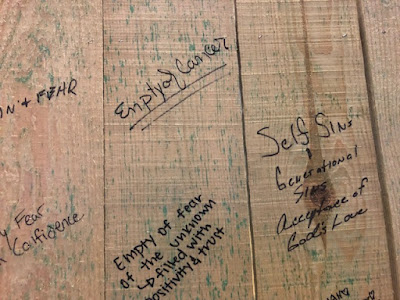 & FEAR
Empty of Cancer
Self Sins
&
Generational
Sins
Acceptance of
God's Love
Fear
Confidence
Empty of fear
of the unknown
↳ filled with
positivity & truit